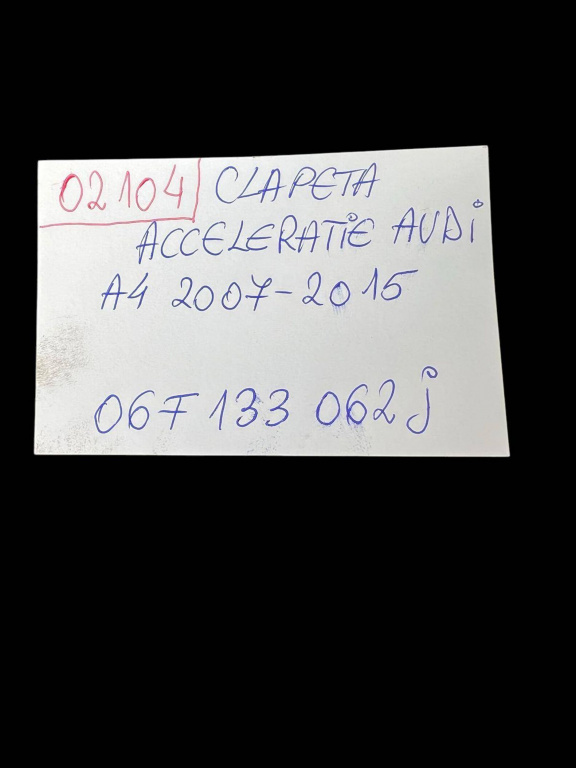 02104 CLAPETA
ACCELERATiE AUDi
A4 2007-2015
06F 133 062 j